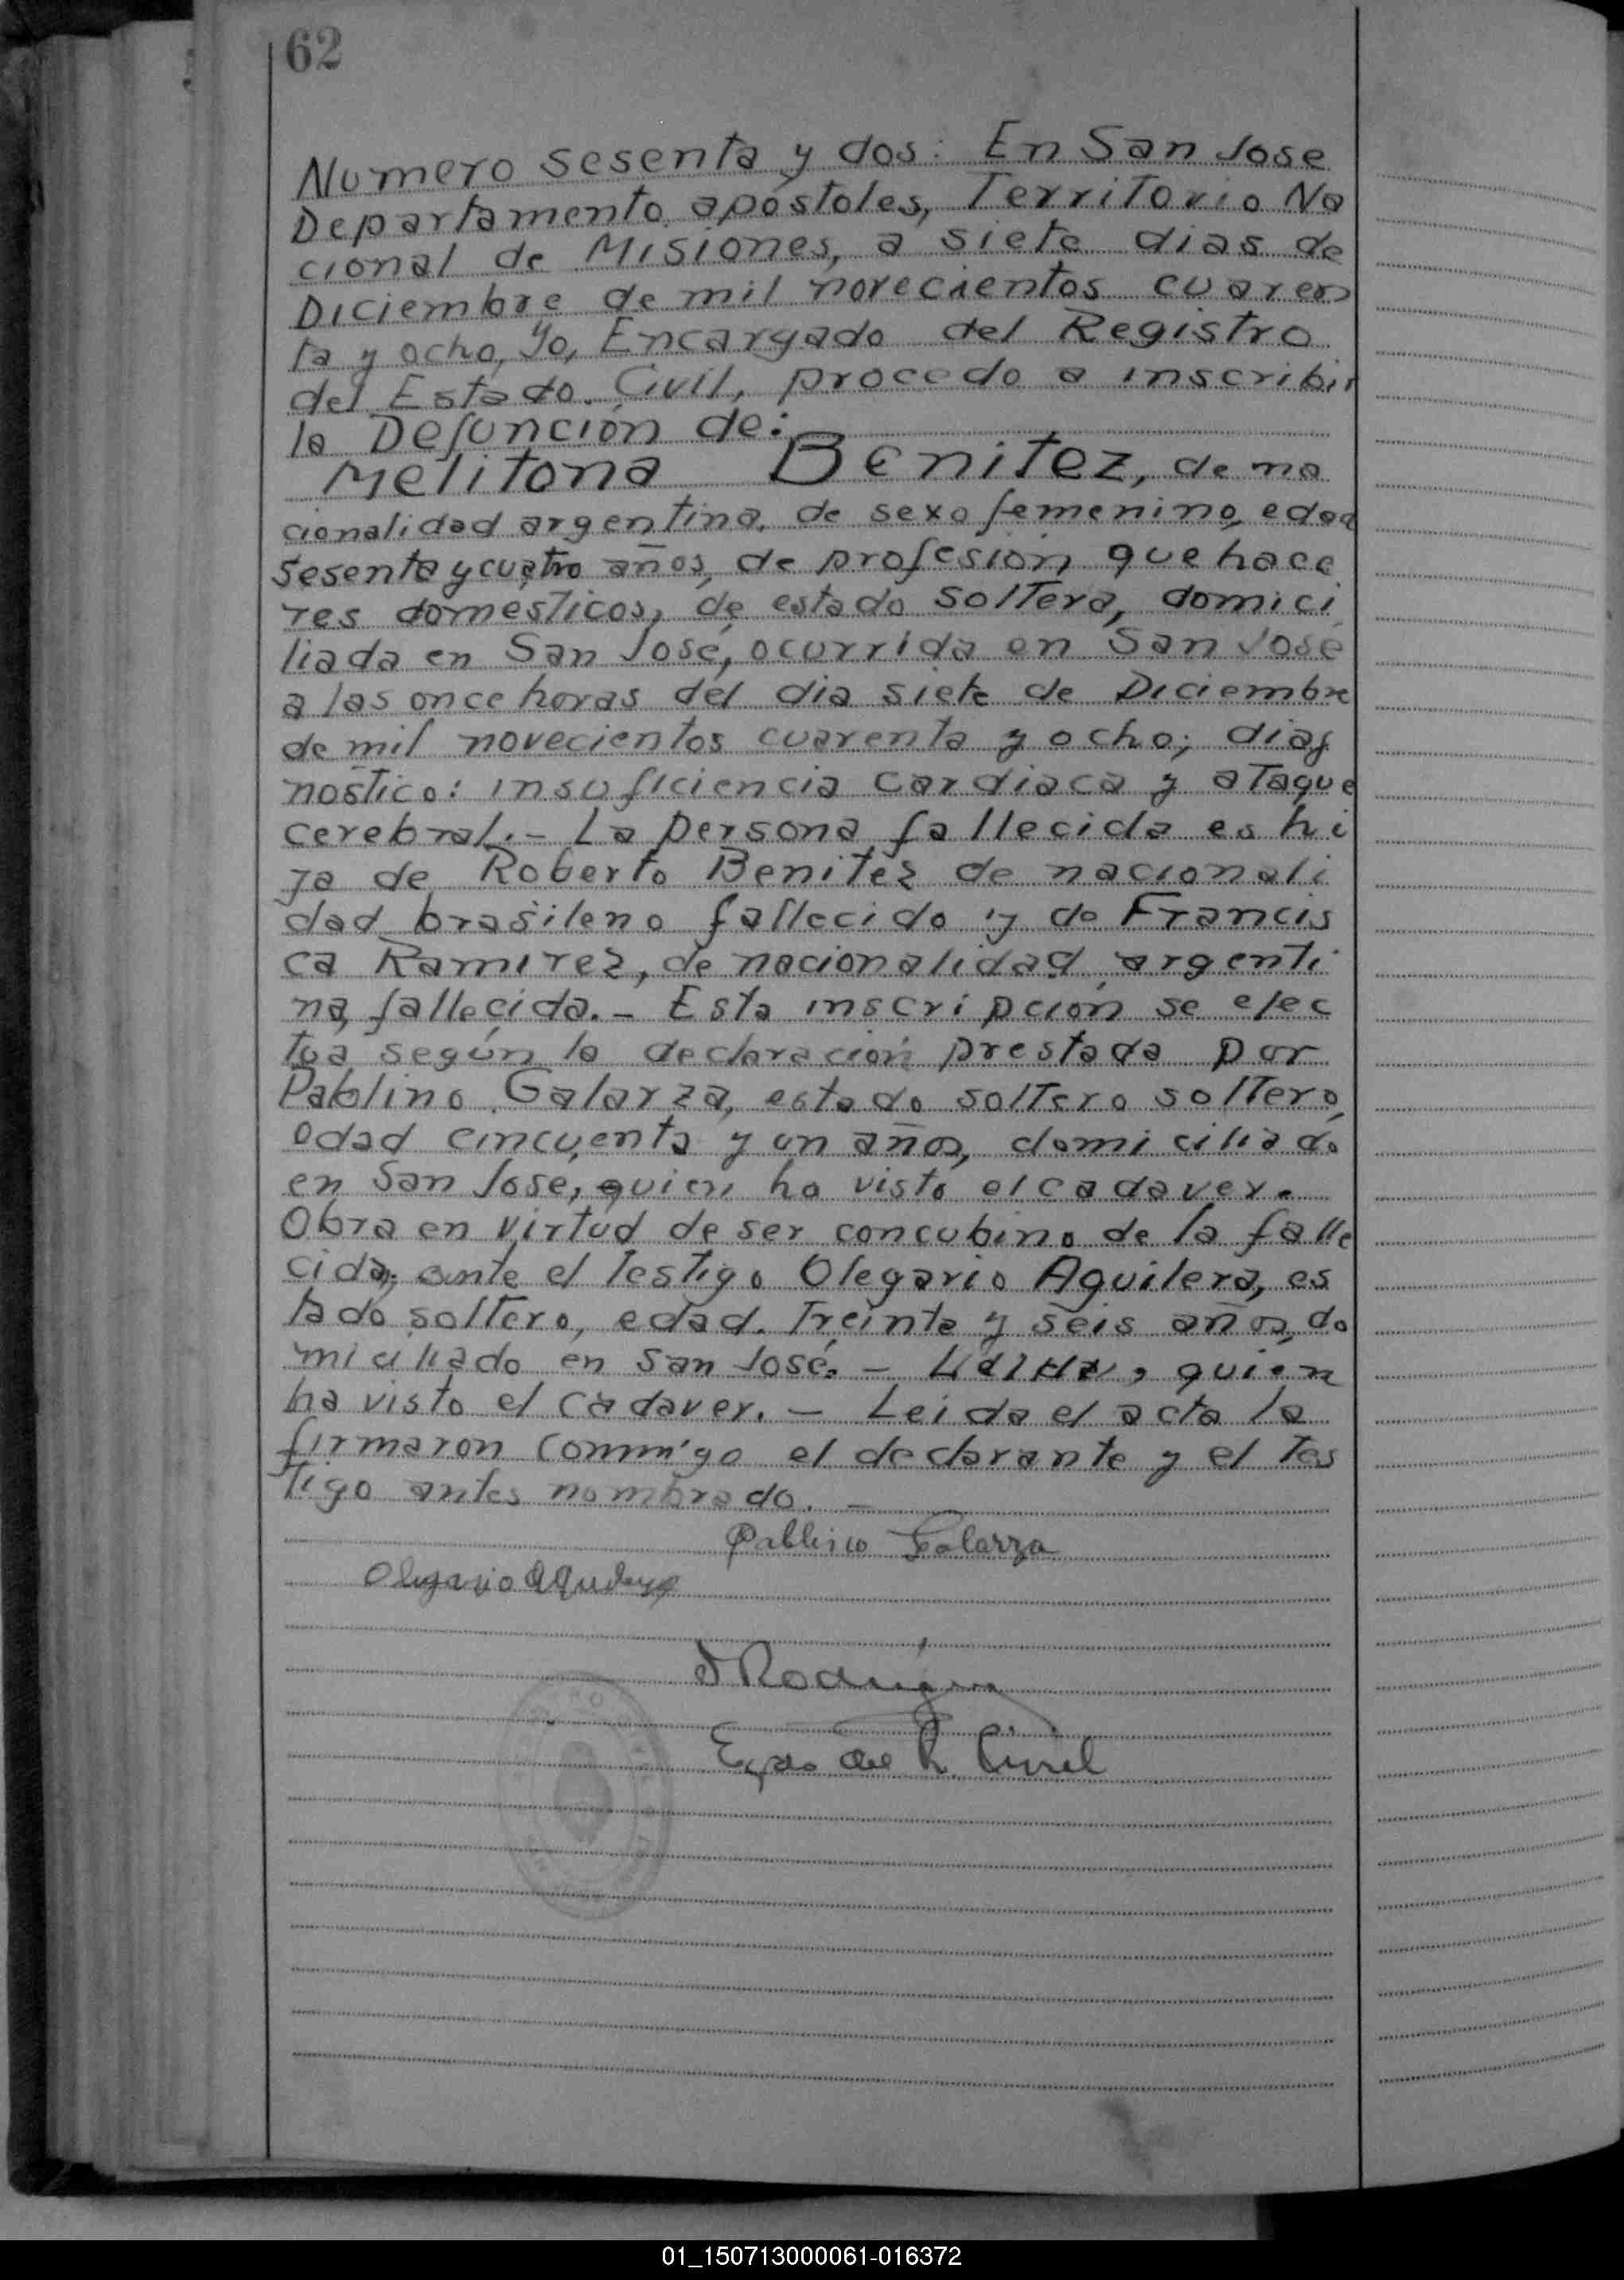 62
Numero sesenta y dos: En San Jose
Departamento apóstoles, Territorio Na
cional de Misiones, a siete dias de
Diciembre de mil novecientos cuaren
ta y ocho, Yo, Encargado del Registro
del Estado Civil, procedo a inscribir
la Defunción de:
Melitona Benitez, de na
cionalidad argentina, de sexo femenino, edad
sesenta y cuatro años, de profesión que hace
res domesticos, de estado soltera, domici
liada en San José, ocurrida en San José
a las once horas del dia siete de Diciembre
de mil novecientos cuarenta y ocho; diag
nostico: insuficiencia cardiaca y ataque
cerebral.- La persona fallecida es hi
ja de Roberto Benitez de nacionali
dad brasileno fallecido y de Francis
ca Ramirez, de nacionalidad argenti
na, fallecida.- Esta inscripción se efec
tua según la declaración prestada por
Pablino Galarza, estado soltero soltero,
edad cincuenta y un años, domiciliado
en San Jose, quien ha visto el cadaver.
Obra en virtud de ser concubino de la falle
cida; ante el testigo Olegario Aguilera, es
tado soltero, edad. treinta y seis años, do
miciliado en San José. - , quien
ha visto el cadaver. - Leida el acta la
firmaron conmigo el declarante y el tes
tigo antes nombrado. -
Pablino Galarza
Olegario
Rodriguez
Egdo del R. Civil
01_150713000061-016372